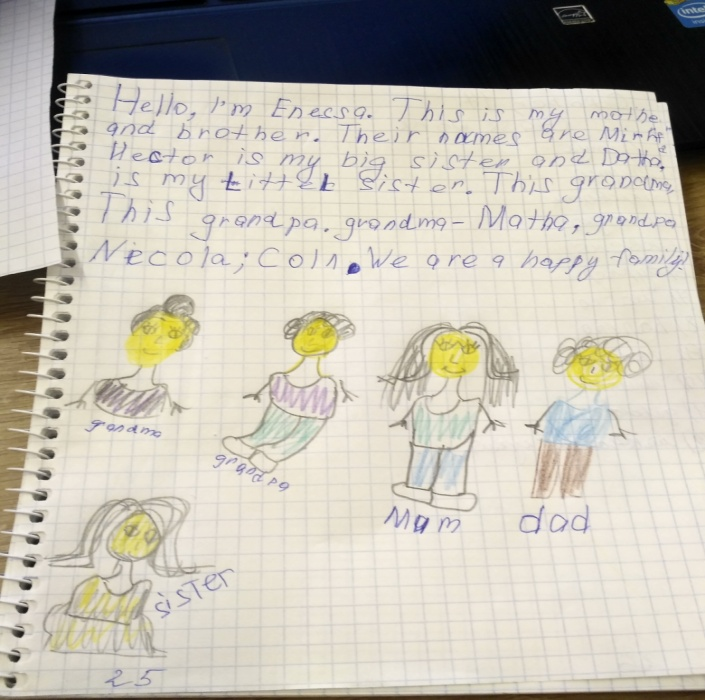 Hello, I'm Enessa. This is my mothe
and brother. Their names are
Hector is my big sister and
is my littel sister. This grandma,
This grandpa. grandma- Matha, grandpa
Necola; Coln. We are a happy family!
grandma
grandpa
Mum
dad
sister
25
intel